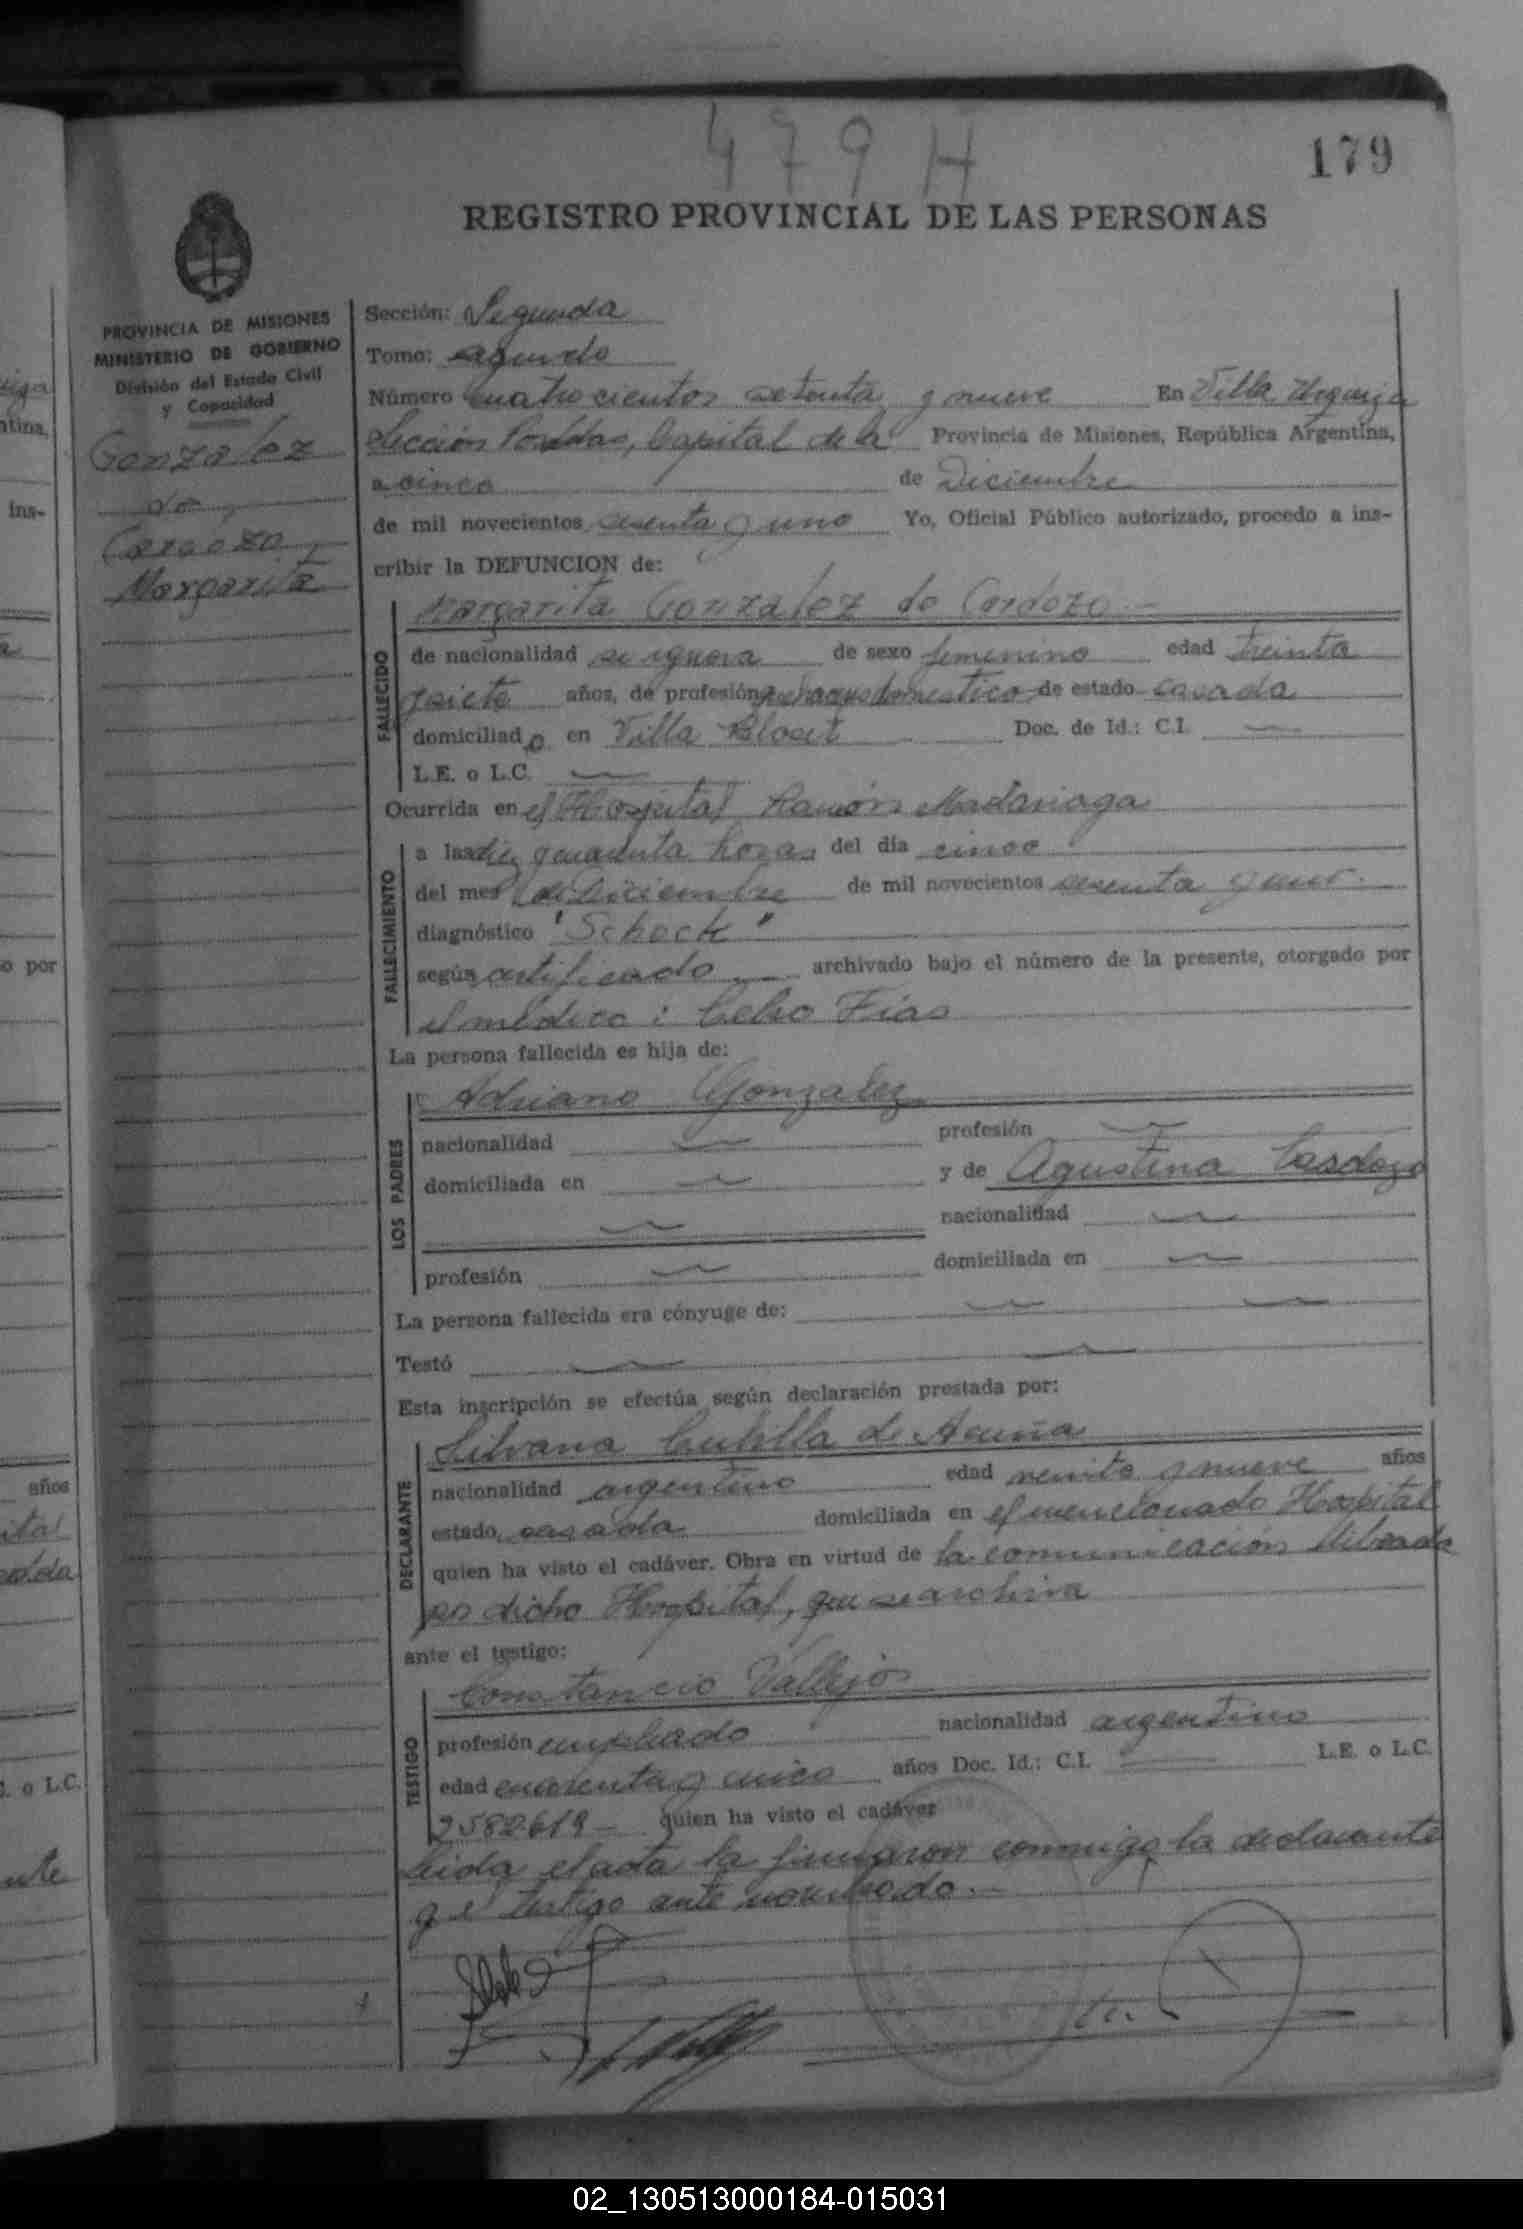 479 H
179
REGISTRO PROVINCIAL DE LAS PERSONAS
PROVINCIA DE MISIONES
MINISTERIO DE GOBIERNO
División del Estado Civil
y Capacidad
Gonzalez
de
Cardozo
Margarita
Sección: Segunda
Tomo: segundo
Número cuatrocientos setenta y nueve En Villa Urquiza
Sección Posadas, Capital de la Provincia de Misiones, República Argentina,
a cinco de Diciembre
de mil novecientos sesenta y uno Yo, Oficial Público autorizado, procedo a ins-
cribir la DEFUNCION de:
Margarita Gonzalez de Cardozo.-
FALLECIDO
de nacionalidad se ignora de sexo femenino edad treinta
y siete años, de profesión domestico de estado casada
domiciliado en Villa Doc. de Id.: C.I.
L.E. o L.C.
Ocurrida en el Hospital Ramón Madariaga
FALLECIMIENTO
a las diez y cuarenta horas del día cinco
del mes de Diciembre de mil novecientos sesenta y uno.
diagnóstico "Schock"
según certificado archivado bajo el número de la presente, otorgado por
el médico: Celso Frias
La persona fallecida es hija de:
Adriano Gonzalez
LOS PADRES
nacionalidad profesión
domiciliada en y de Agustina Cardozo
nacionalidad
profesión domiciliada en
La persona fallecida era cónyuge de:
Testó
Esta inscripción se efectúa según declaración prestada por:
Silvana de Acuña
DECLARANTE
nacionalidad argentino edad veinte y nueve años
estado casada domiciliada en el mencionado Hospital
quien ha visto el cadáver. Obra en virtud de la comunicación librada
por dicho Hospital, que se archiva
ante el testigo:
Constancio Vallejos
TESTIGO
profesión empleado nacionalidad argentino
edad cuarenta y cinco años Doc. Id.: C.I. L.E. o L.C.
2582619- quien ha visto el cadáver
Leida el acta la firmaron conmigo la declarante
y el testigo ante nombrado.-
ins-
o por
años
o L.C.
02_130513000184-015031